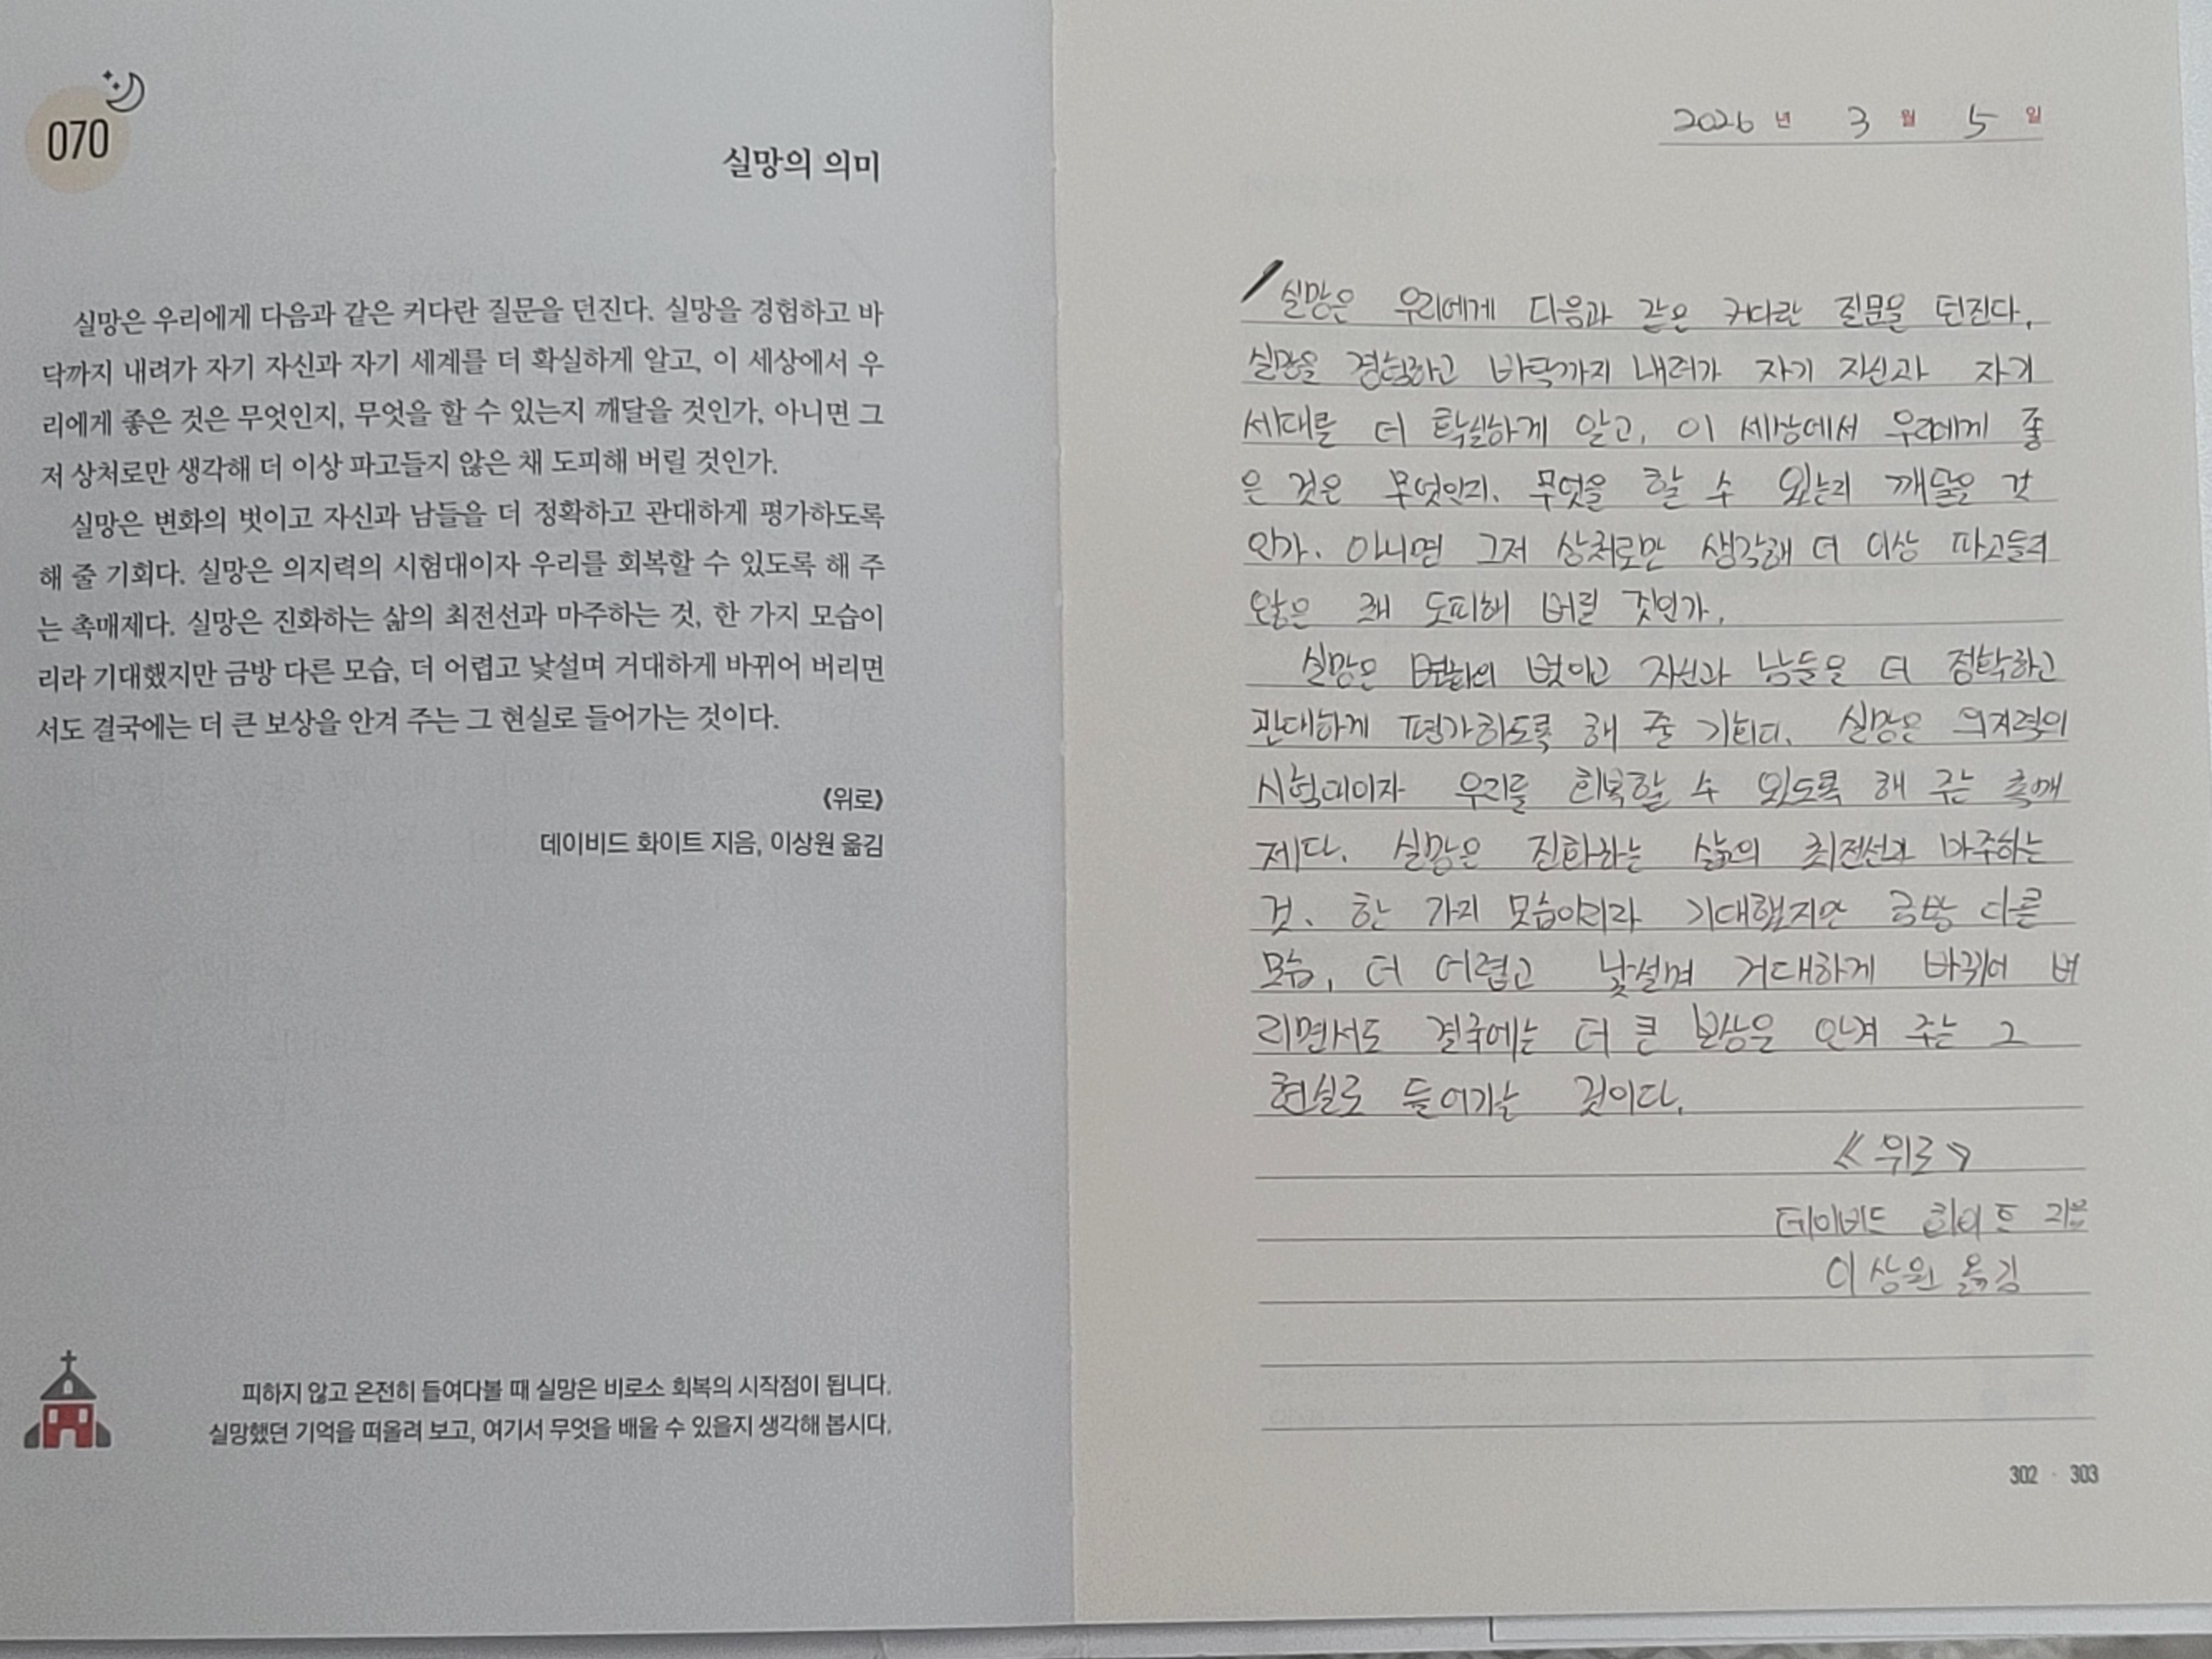 070
실망의 의미
실망은 우리에게 다음과 같은 커다란 질문을 던진다. 실망을 경험하고 바
닥까지 내려가 자기 자신과 자기 세계를 더 확실하게 알고, 이 세상에서 우
리에게 좋은 것은 무엇인지, 무엇을 할 수 있는지 깨달을 것인가, 아니면 그
저 상처로만 생각해 더 이상 파고들지 않은 채 도피해 버릴 것인가.
실망은 변화의 벗이고 자신과 남들을 더 정확하고 관대하게 평가하도록
해 줄 기회다. 실망은 의지력의 시험대이자 우리를 회복할 수 있도록 해 주
는 촉매제다. 실망은 진화하는 삶의 최전선과 마주하는 것, 한 가지 모습이
리라 기대했지만 금방 다른 모습, 더 어렵고 낯설며 거대하게 바뀌어 버리면
서도 결국에는 더 큰 보상을 안겨 주는 그 현실로 들어가는 것이다.
《위로》
데이비드 화이트 지음, 이상원 옮김
피하지 않고 온전히 들여다볼 때 실망은 비로소 회복의 시작점이 됩니다.
실망했던 기억을 떠올려 보고, 여기서 무엇을 배울 수 있을지 생각해 봅시다.
2026 년 3 월 5 일
실망은 우리에게 다음과 같은 커다란 질문을 던진다.
실망을 경험하고 바닥까지 내려가 자기 자신과 자기
세대를 더 확실하게 알고, 이 세상에서 우리에게 좋
은 것은 무엇인지. 무엇을 할 수 있는지 깨달을 것
인가. 아니면 그저 상처로만 생각해 더 이상 파고들지
않은 채 도피해 버릴 것인가.
실망은 변화의 벗이고 자신과 남들을 더 정확하고
관대하게 평가하도록 해 줄 기회다. 실망은 의지력의
시험대이자 우리를 회복할 수 있도록 해 주는 촉매
제다. 실망은 진화하는 삶의 최전선과 마주하는
것. 한 가지 모습이리라 기대했지만 금방 다른
모습, 더 어렵고 낯설며 거대하게 바뀌어 버
리면서도 결국에는 더 큰 보상을 안겨 주는 그
현실로 들어가는 것이다.
《위로》
데이비드 화이트 지음
이상원 옮김
302 · 303